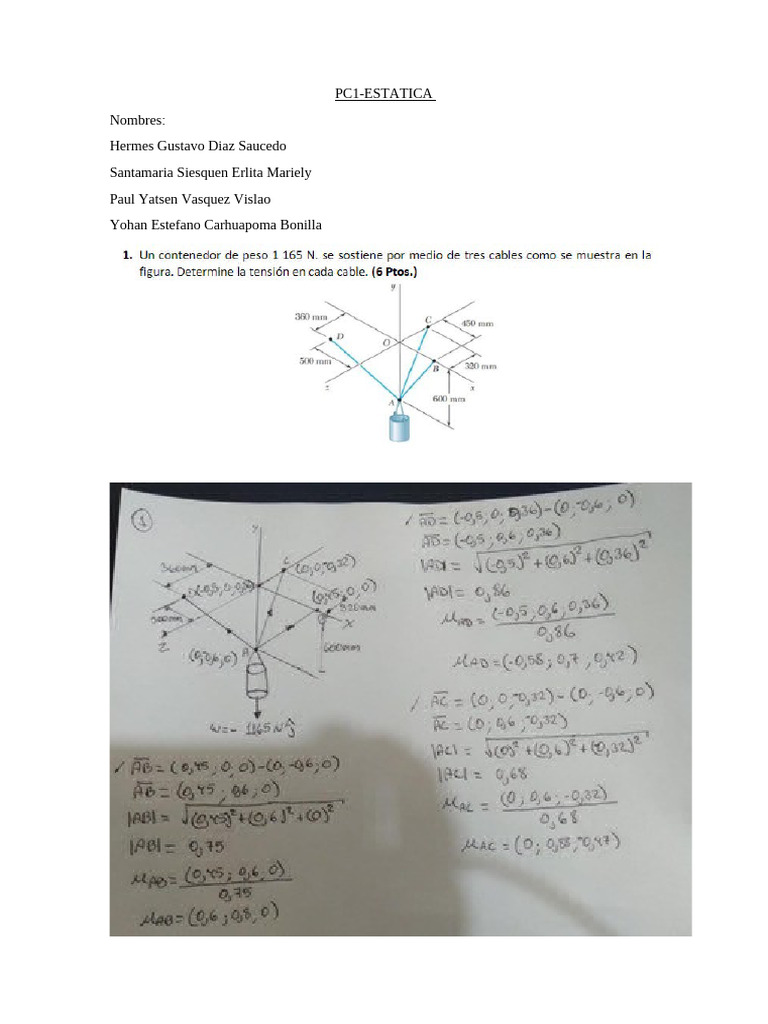 PC1-ESTATICA
Nombres:
Hermes Gustavo Diaz Saucedo
Santamaria Siesquen Erlita Mariely
Paul Yatsen Vasquez Vislao
Yohan Estefano Carhuapoma Bonilla
1. Un contenedor de peso 1 165 N. se sostiene por medio de tres cables como se muestra en la
figura. Determine la tensión en cada cable. (6 Ptos.)
y
360 mm
C
450 mm
D
O
500 mm
B
320 mm
z
x
A
600 mm
1
y
360mm
C
(0,0,-0,32)
(0,45;0,0)
320mm
X
Z
(0,-0,6;0)
A
600mm
W=- 1165 N ĵ
AB = (0,45; 0; 0)-(0,-0,6;0)
AB = (0,45; 0,6; 0)
|AB| = √(0,45)²+(0,6)²+(0)²
|AB| = 0,75
μAB = (0,45; 0,6, 0)
0,75
μAB = (0,6; 0,8, 0)
AD = (-0,5; 0; 0,36)-(0;-0,6; 0)
AD = (-0,5; 0,6; 0,36)
|AD| = √(-0,5)²+(0,6)²+(0,36)²
|AD| = 0,86
μAD = (-0,5; 0,6, 0,36)
0,86
μAD = (-0,58; 0,7, 0,42)
AC = (0, 0,-0,32)-(0; -0,6; 0)
AC = (0; 0,6; -0,32)
|AC| = √(0)²+(0,6)²+(-0,32)²
|AC| = 0,68
μAC = (0; 0,6; -0,32)
0,68
μAC = (0; 0,88,-0,47)